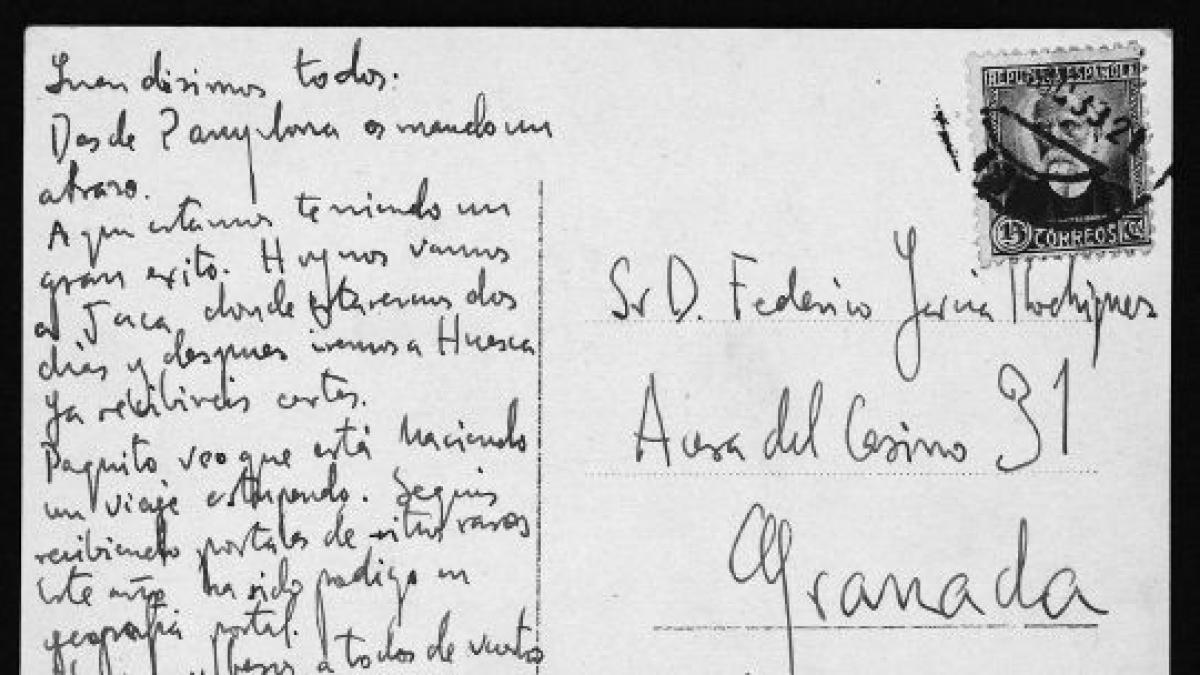 Queridísimos todos:
Desde Pamplona os mando un
abrazo.
Aqui estamos teniendo un
gran exito. Hoy nos vamos
a Jaca donde estaremos dos
dias y despues iremos a Huesca
Ya recibireis cartas.
Paquito veo que está haciendo
un viaje estupendo. Seguis
recibiendo postales de sitios raros
Este año ha sido prodigo en
geografia postal.
besos a todos de vuestro
REPUBLICA ESPAÑOLA
15 CORREOS CTS
Sr D. Federico García Rodriguez
Acera del Casino 31
Granada